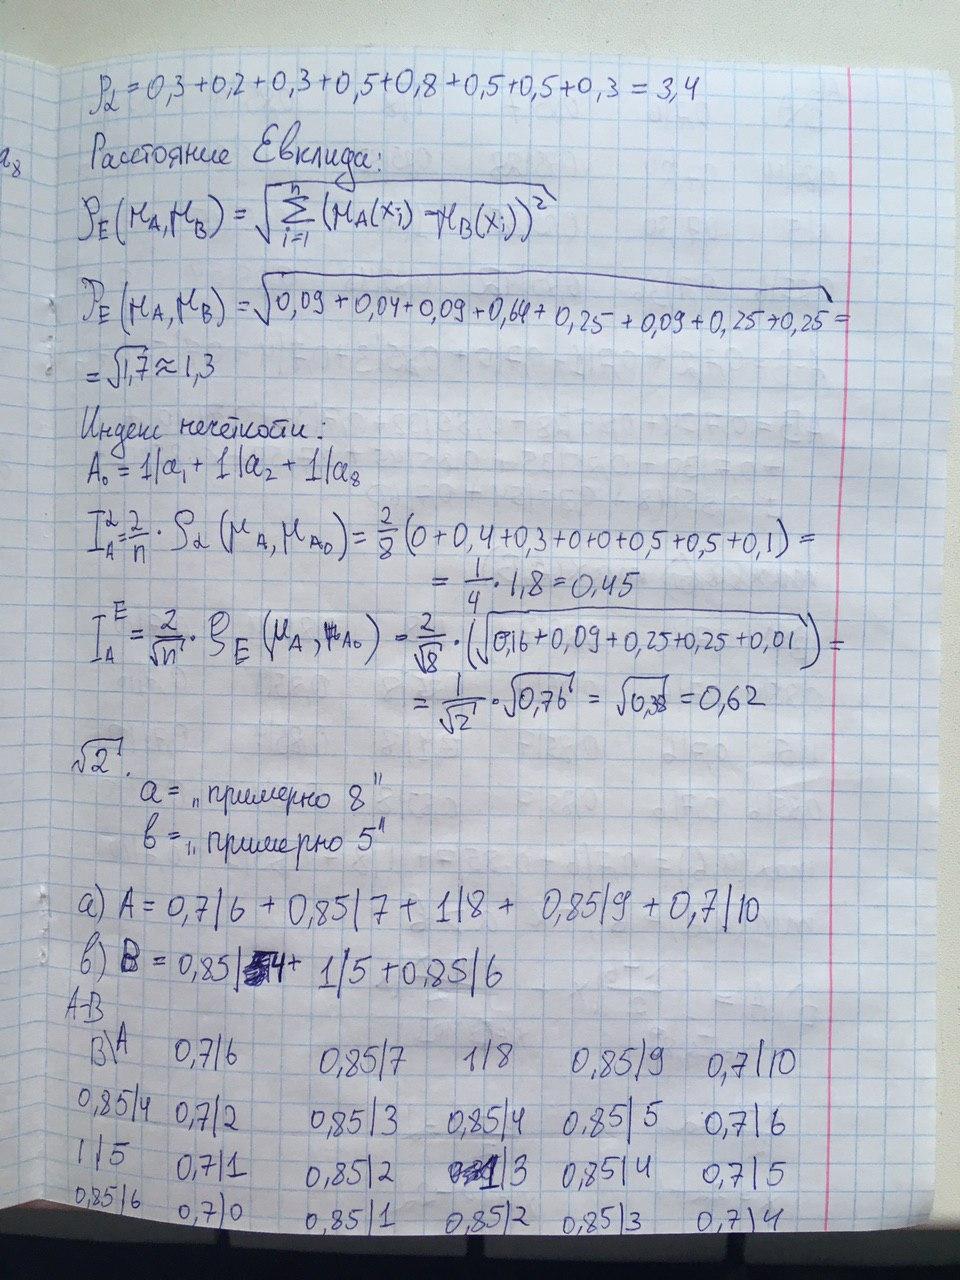 a₈
ρ₂ = 0,3+0,2+0,3+0,5+0,8+0,5+0,5+0,3 = 3,4
Расстояние Евклида:
ρ_E(μ_A, μ_B) = √(∑_{i=1}^{n} (μ_A(x_i) - μ_B(x_i))²)
ρ_E(μ_A, μ_B) = √(0,09+0,04+0,09+0,64+0,25+0,09+0,25+0,25) =
= √1,7 ≈ 1,3
Индекс нечёткости:
A₀ = 1|a₁ + 1|a₂ + 1|a₈
I_A^2 = 2/n · ρ₂(μ_A, μ_{A₀}) = 2/8 (0+0,4+0,3+0+0+0,5+0,5+0,1) =
= 1/4 · 1,8 = 0,45
I_A^E = 2/√n · ρ_E(μ_A, μ_{A₀}) = 2/√8 · (√(0,16+0,09+0,25+0,25+0,01)) =
= 1/√2 · √0,76 = √0,38 = 0,62
√2.
a = „примерно 8"
b = „примерно 5"
a) A = 0,7|6 + 0,85|7 + 1|8 + 0,85|9 + 0,7|10
b) B = 0,85|4 + 1|5 + 0,85|6
A-B
B\A 0,7|6 0,85|7 1|8 0,85|9 0,7|10
0,85|4 0,7|2 0,85|3 0,85|4 0,85|5 0,7|6
1|5 0,7|1 0,85|2 1|3 0,85|4 0,7|5
0,85|6 0,7|0 0,85|1 0,85|2 0,85|3 0,7|4